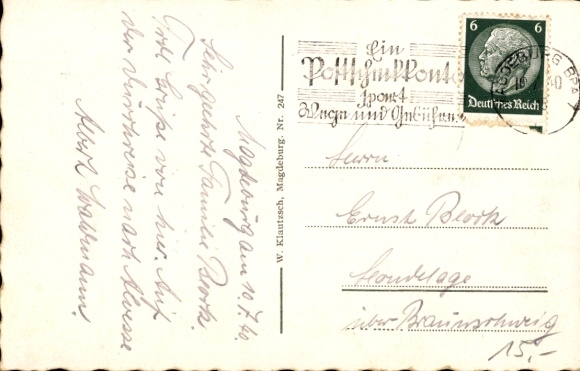 Magdeburg am 10.7.40.
Sehr geehrte Familie Beork.
Frdl. Grüße von hier. Auf
der Durchreise nach
Albert
W. Klautzsch, Magdeburg. Nr. 247
Ein
Postscheckkonto
spart
Wege und Gebühren
6 6
Deutsches Reich
Herrn
Ernst Beork
Hondelage
über Braunschweig
15,-